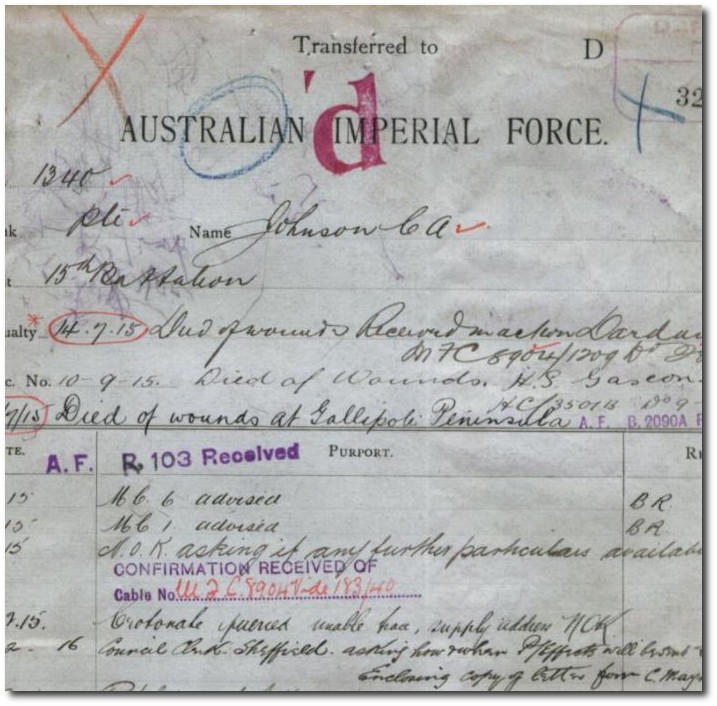 Transferred to D
32
'd
AUSTRALIAN IMPERIAL FORCE.
1340
Pte Name Johnson C A
15th Battalion
ualty 14.7.15 Died of wounds Received in action Dardan
M F C 8904/1209
c. No. 10-9-15. Died of Wounds. H.S. Gascon
HC/3501B
7/15 Died of wounds at Gallipoli Peninsula A.F. B.2090A
TE. A.F. R 103 Received PURPORT. R
15 M C 6 advised BR
15 M C 1 advised BR
15 N.O.K. asking if any further particulars availab
CONFIRMATION RECEIVED OF
Cable No. M F C 8904 Vide 183/40
.15. queried unable trace, supply address NOK
16 Council Clerk Sheffield. asking how & when P/Effects will be sent
Enclosing copy of letter from C.